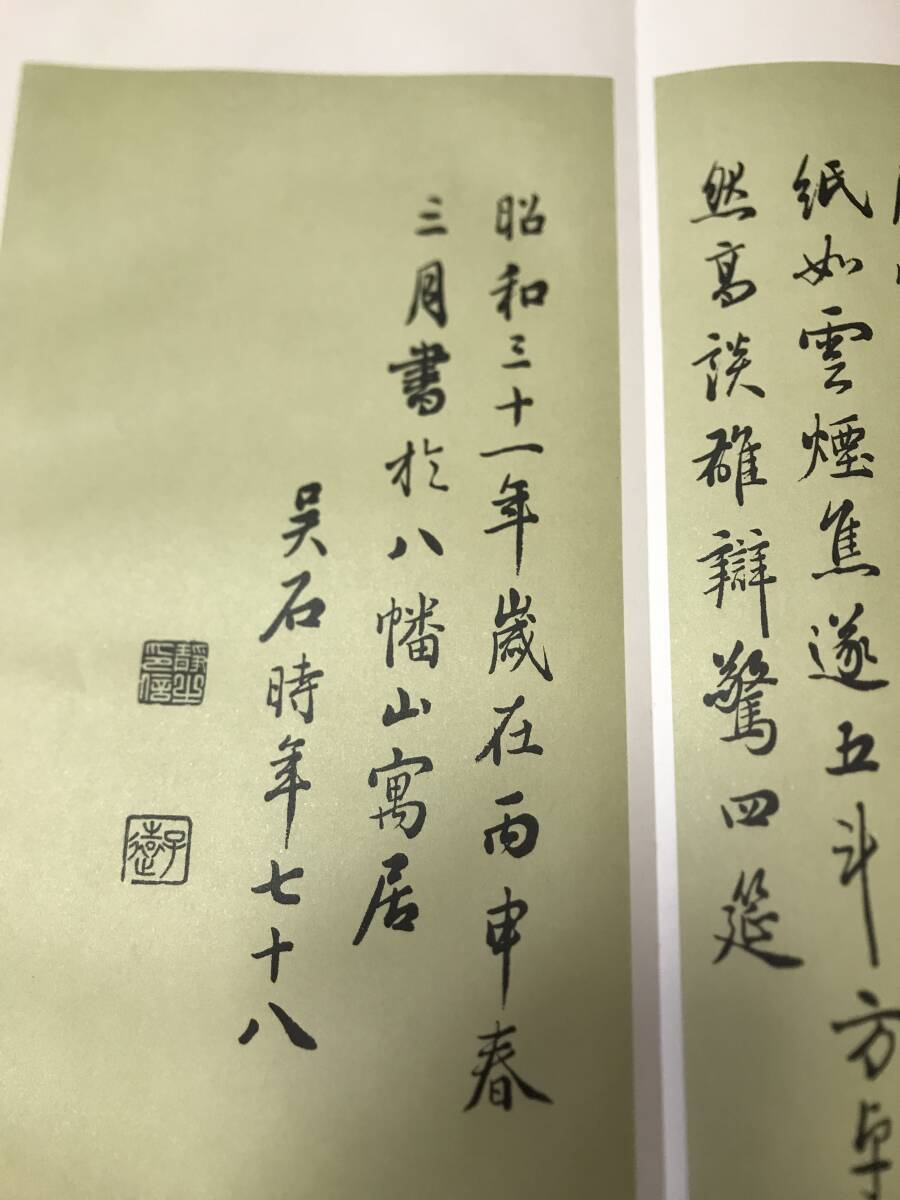 紙如雲煙焦遂五斗方卓
然高談雄辯驚四筵
昭和三十一年歲在丙申春
三月書於八幡山寓居
吴石時年七十八